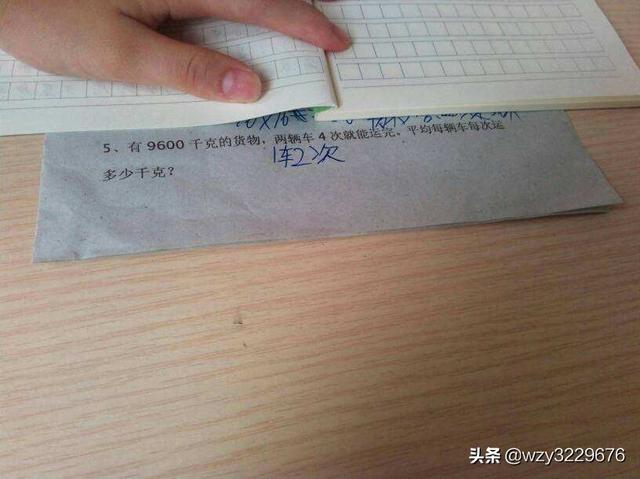 5、有 9600 千克的货物，两辆车 4 次就能运完，平均每辆车每次运
1车2次
多少千克？
头条 @wzy3229676